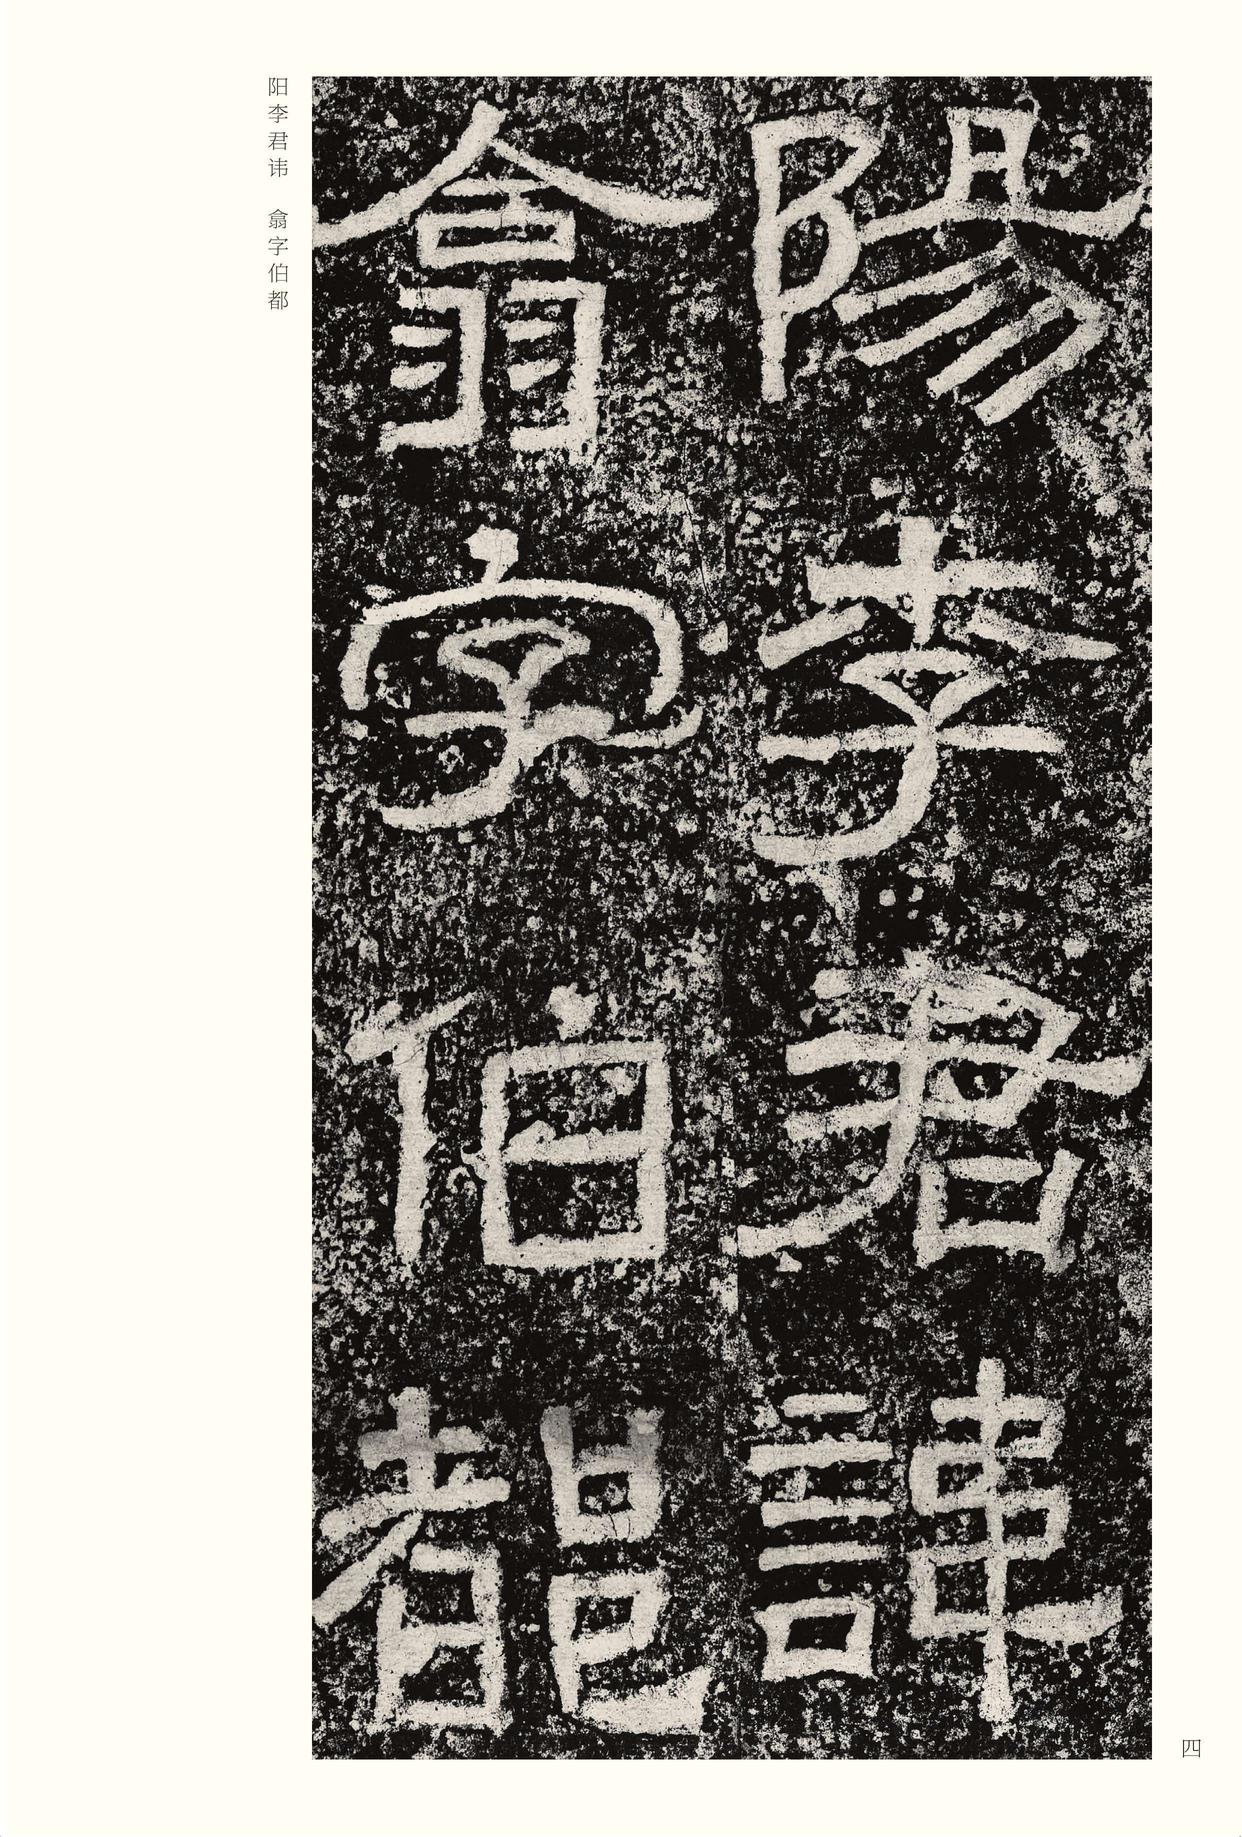 陽李君諱
翕字伯都
阳李君讳 翕字伯都
四